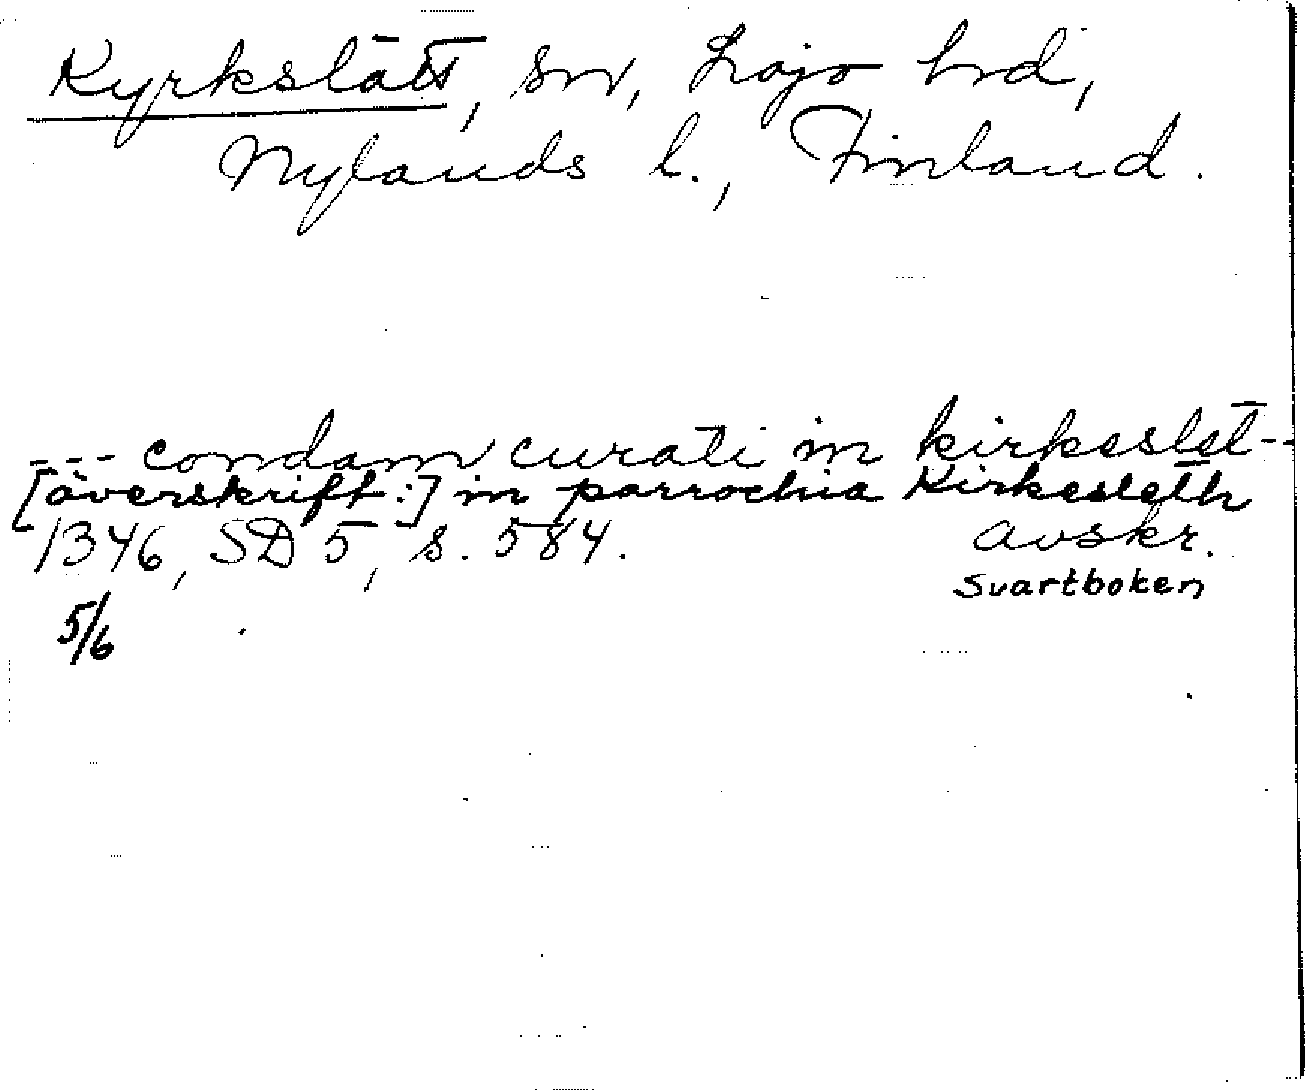 Kyrkslätt, sn, Lojo hd,
Nylands l., Finland.
--- condam curati in kirkeslet--
[överskrift:] in parrochia Kirkesleth
1346, SD 5, s. 584. avskr.
Svartboken
5/6